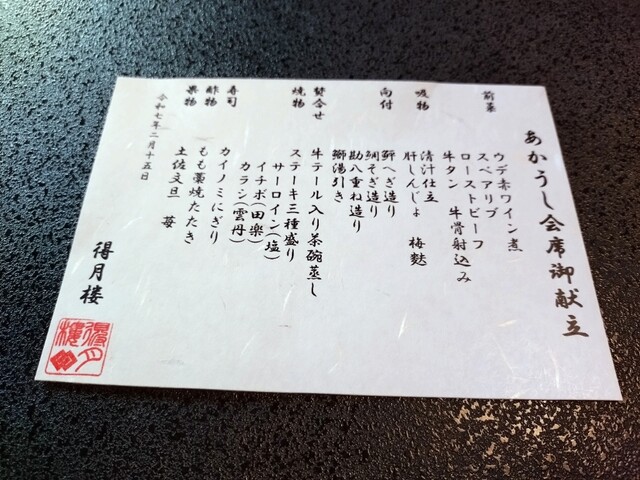 あかうし会席御献立
前菜
ウデ赤ワイン煮
スペアリブ
ローストビーフ
牛タン 牛骨射込み
吸物
清汁仕立
肝しんじょ 梅麩
向付
鮃へぎ造り
鯛そぎ造り
勘八重ね造り
鰤湯引き
焚合せ
牛テール入り茶碗蒸し
焼物
ステーキ三種盛り
サーロイン(塩)
イチボ(田楽)
カラシ(雲丹)
寿司
カイノミにぎり
酢物
もも藁焼たたき
果物
土佐文旦 苺
令和七年二月十五日
得月楼
得月樓